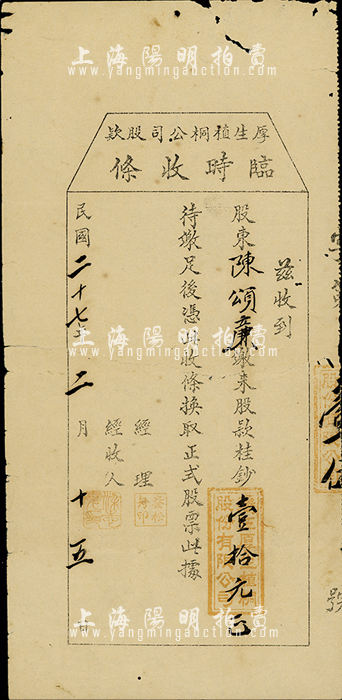 上海陽明拍賣
www.yangmingauction.com
厚生植桐公司股款
臨時收條
茲收到
股東陳頌廉繳来股款桂鈔壹拾元正
待繳足後憑此收條換取正式股票此據
經理
經收人
民國二十七年二月十五日
股份有限公司
號
上海陽明拍賣
www.yangmingauction.com
上海陽明拍賣
www.yangmingauction.com